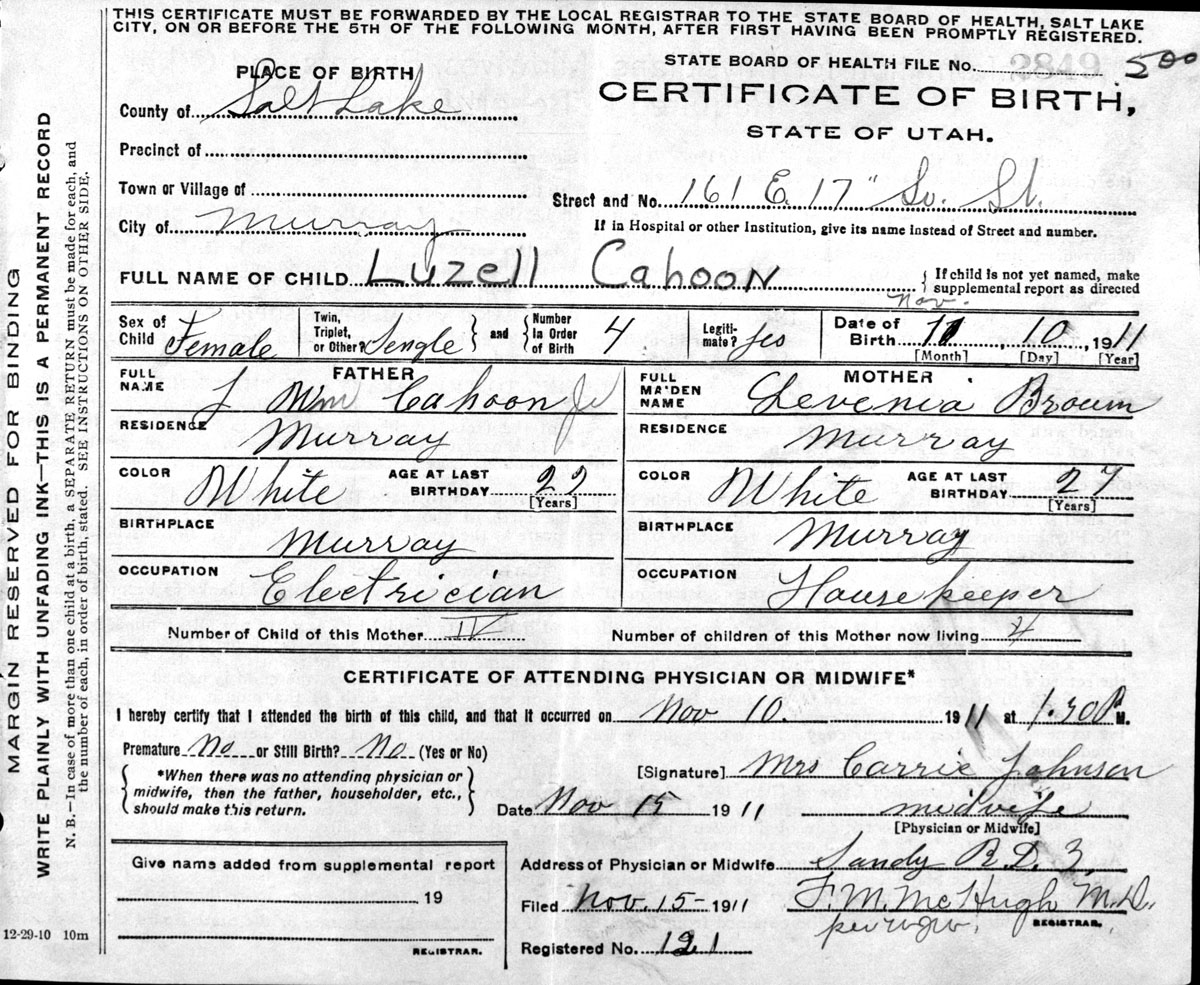 THIS CERTIFICATE MUST BE FORWARDED BY THE LOCAL REGISTRAR TO THE STATE BOARD OF HEALTH, SALT LAKE
CITY, ON OR BEFORE THE 5TH OF THE FOLLOWING MONTH, AFTER FIRST HAVING BEEN PROMPTLY REGISTERED.
PLACE OF BIRTH
County of Salt Lake
Precinct of
Town or Village of
City of Murray
STATE BOARD OF HEALTH FILE No. 2849 500
CERTIFICATE OF BIRTH,
STATE OF UTAH.
Street and No. 161 E. 17" So. St.
If in Hospital or other Institution, give its name instead of Street and number.
FULL NAME OF CHILD Luzell Cahoon
If child is not yet named, make
supplemental report as directed
Sex of Child Female
Twin, Triplet, or Other? Sengle and Number in Order of Birth 4
Legiti-mate? yes
Nov.
Date of Birth 11 10, 1911
[Month] [Day] [Year]
FATHER
FULL NAME J Wm Cahoon Jr
RESIDENCE Murray
COLOR White AGE AT LAST BIRTHDAY 22
[Years]
BIRTHPLACE Murray
OCCUPATION Electrician
MOTHER
FULL MAIDEN NAME Levenia Brown
RESIDENCE Murray
COLOR White AGE AT LAST BIRTHDAY 27
[Years]
BIRTHPLACE Murray
OCCUPATION Housekeeper
Number of Child of this Mother IV
Number of children of this Mother now living 4
CERTIFICATE OF ATTENDING PHYSICIAN OR MIDWIFE*
I hereby certify that I attended the birth of this child, and that it occurred on Nov 10. 1911 at 1.30 P M.
Premature No or Still Birth? No (Yes or No)
*When there was no attending physician or
midwife, then the father, householder, etc.,
should make this return.
[Signature] Mrs Carrie Johnson
Date Nov 15 1911 midwife
[Physician or Midwife]
Give name added from supplemental report
19
REGISTRAR.
Address of Physician or Midwife Sandy R.D. 3
Filed Nov. 15- 1911 F. M. McHugh M.D.
REGISTRAR.
Registered No. 121
12-29-10 10m
MARGIN RESERVED FOR BINDING
WRITE PLAINLY WITH UNFADING INK—THIS IS A PERMANENT RECORD
N. B.—In case of more than one child at a birth, a SEPARATE RETURN must be made for each, and
the number of each, in order of birth, stated. SEE INSTRUCTIONS ON OTHER SIDE.